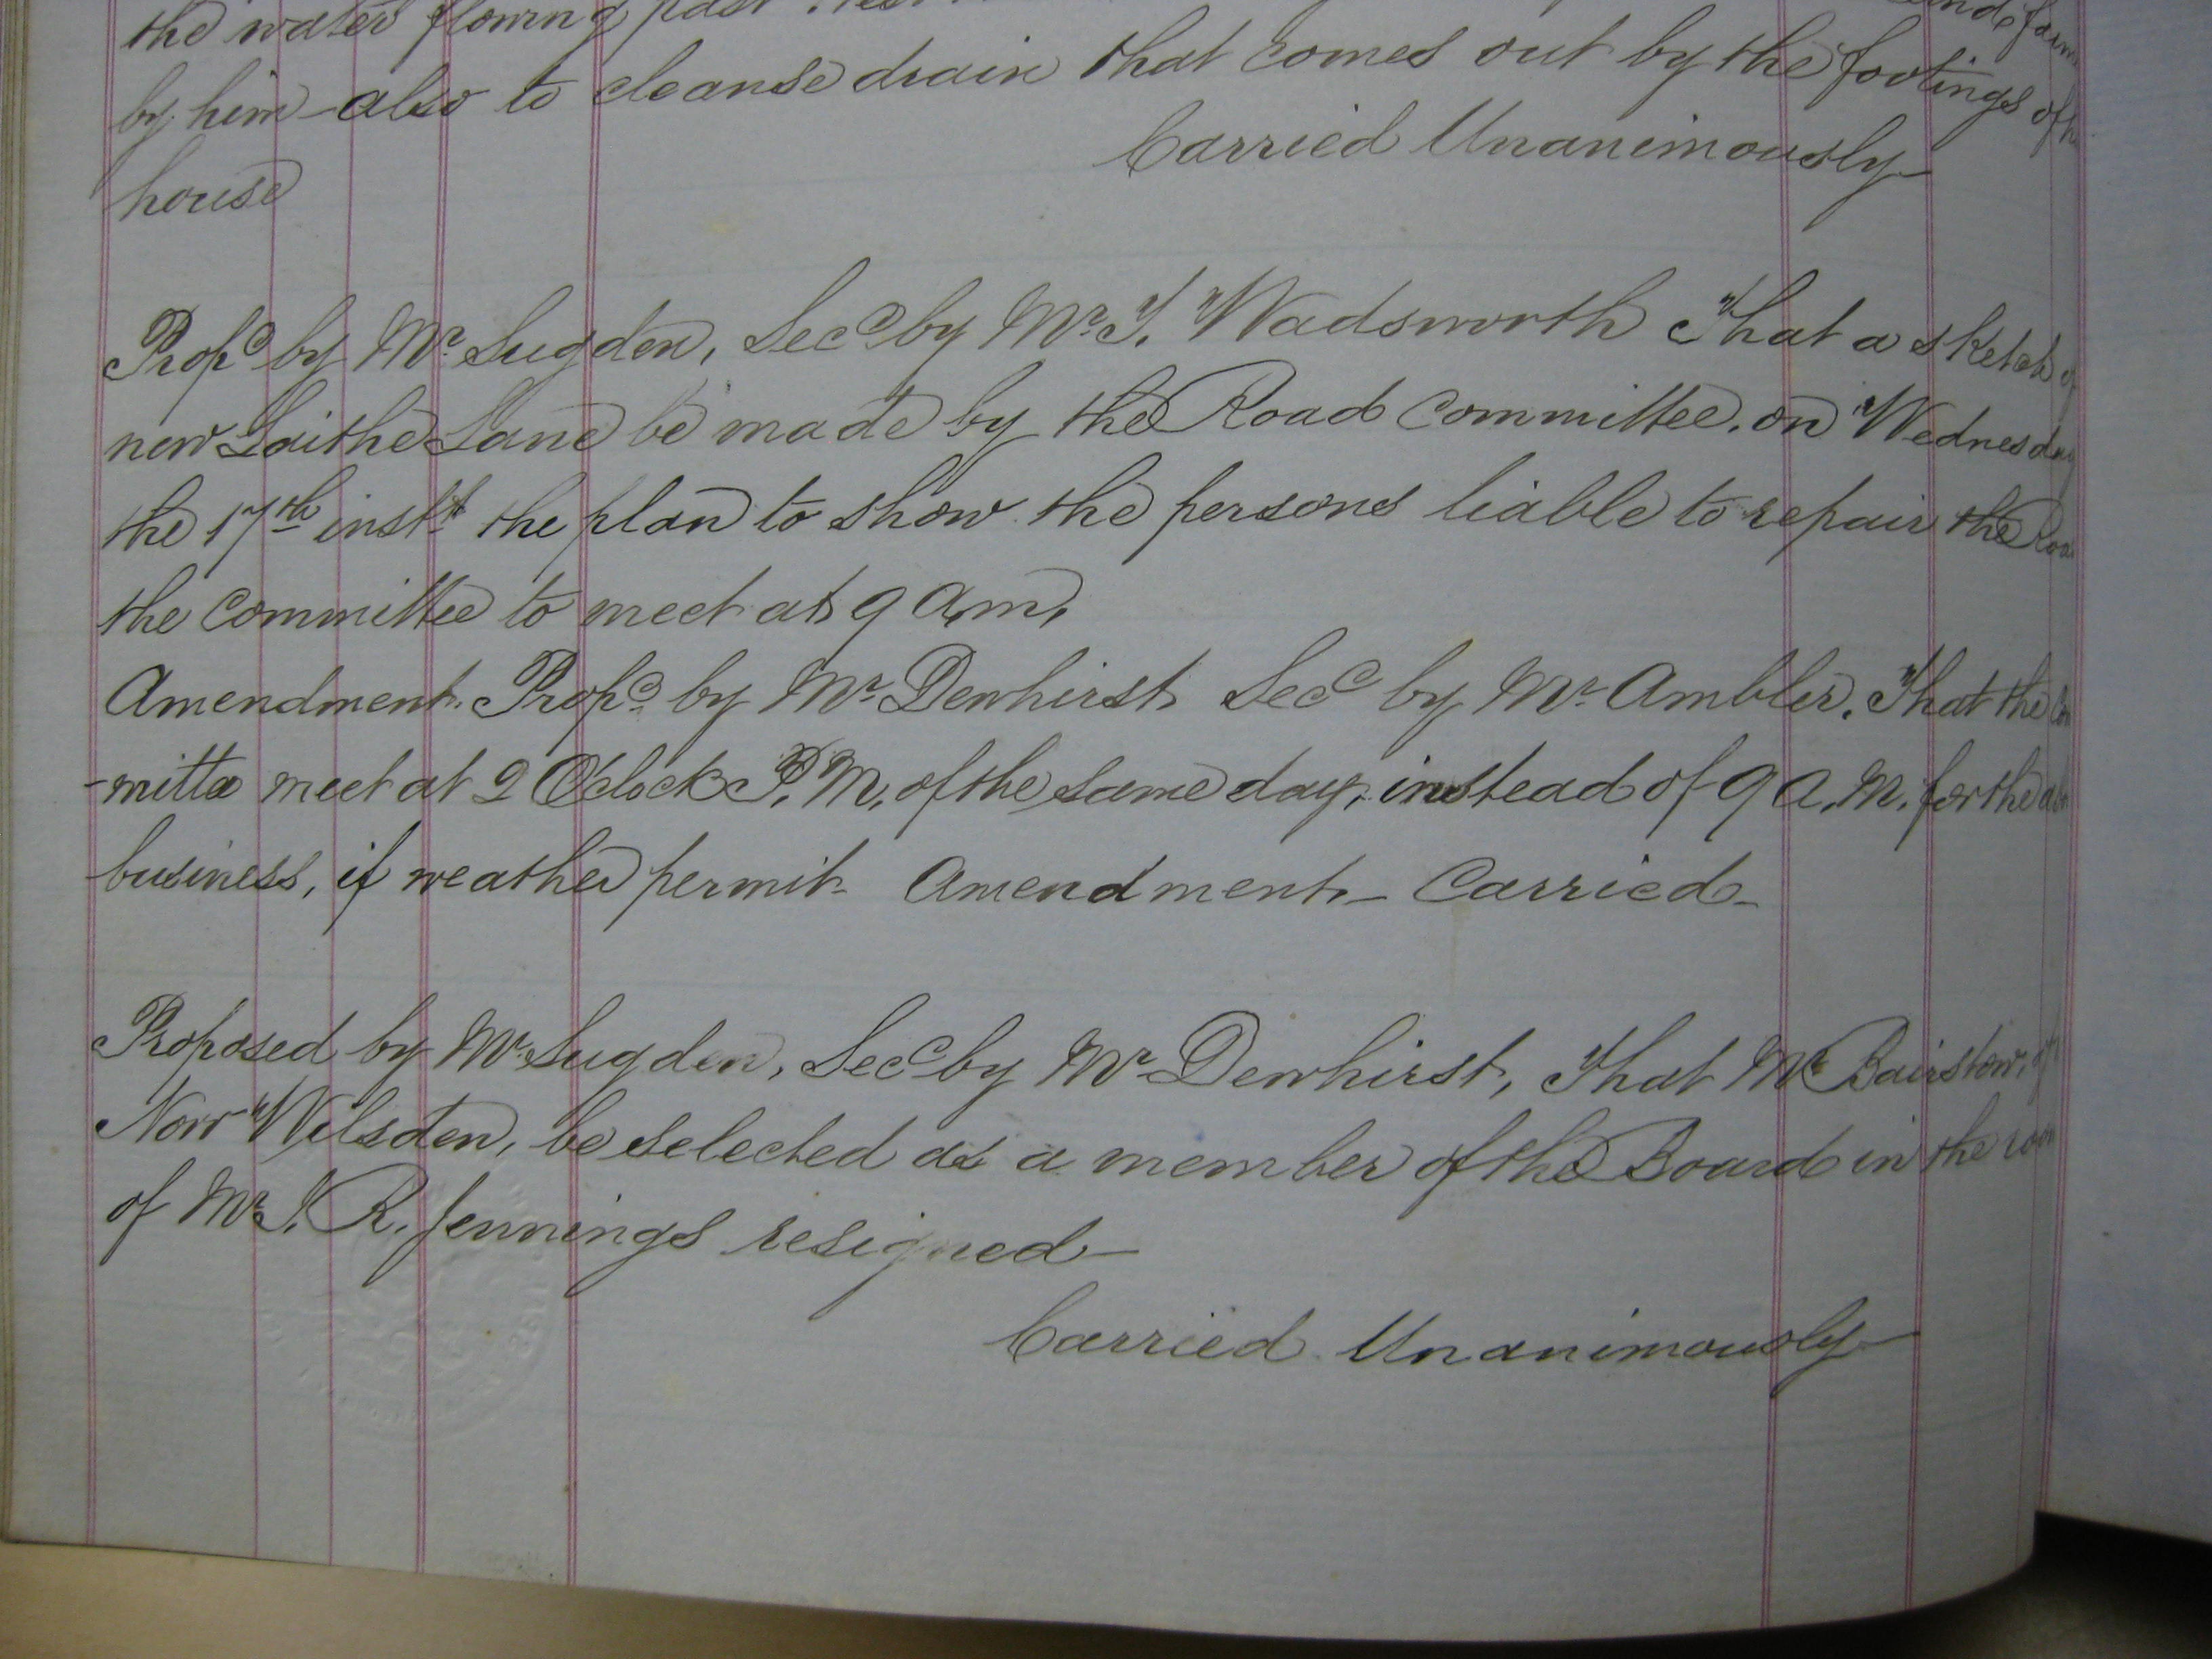 the water flowing past
by him also to cleanse drain that comes out by the footings of
house
Carried Unanimously
Propd by Mr Sugden, Secd by Mr J. Wadsworth That a sketch of
new Laithe Lane be made by the Road Committee, on Wednesday
the 17th instt the plan to show the persons liable to repair the
the Committee to meet at 9 a,m,
Amendment. Propd by Mr Dewhirst Secd by Mr Ambler. That the Com
-mitte meet at 2 O'clock P.M. of the same day, instead of 9 A.M. for the
business, if weather permit Amendment - Carried -
Proposed by Mr Sugden, Secd by Mr Dewhirst, That Mr Bairstow, of
Norr Wilsden, be selected as a member of the Board in the room
of Mr J. R. Jennings resigned -
Carried Unanimously